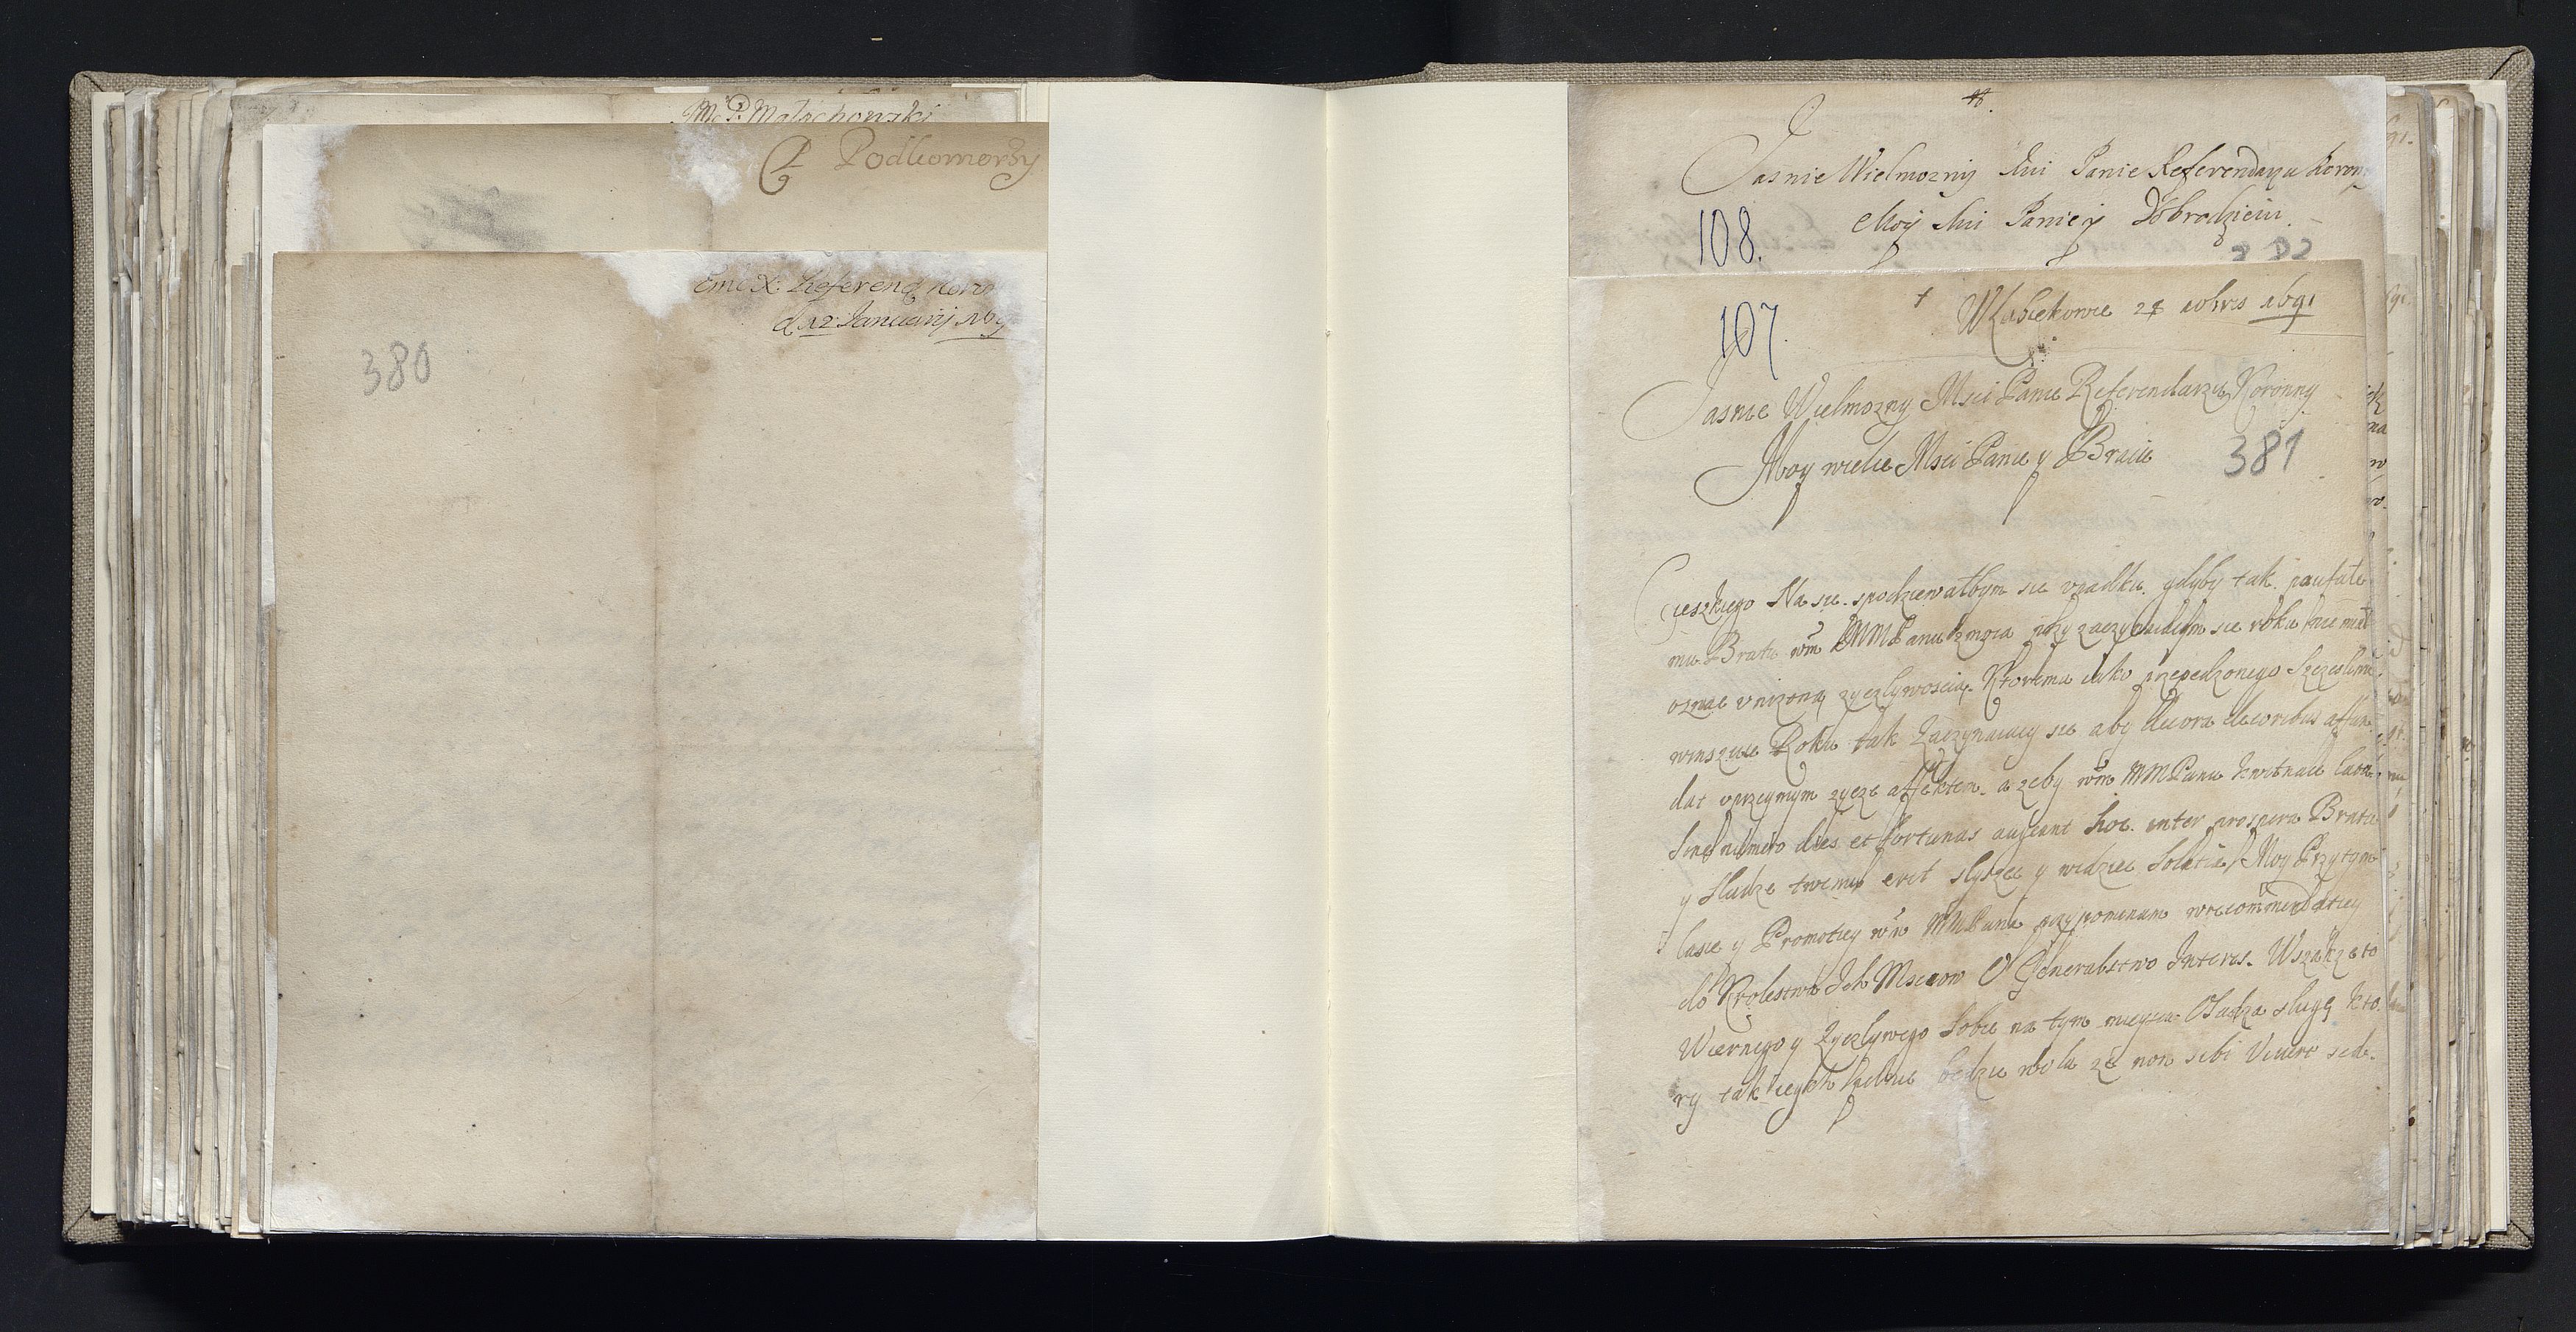 M.P. Małachowski
P Podkomorzy
X. Referend Koro
d 12 Januarij 169
380
Jasnie Wielmozny Mci Panie Referendarzu Koron
108.
Moy Mci Panie y Dobrodzieiu
382
107.
28 Xbris 1691
Jasnie Wielmozny Msci Panie Referendarzu Koronny
Moy wielce Msci Panie y Bracie
381
Cieszkiego Na sie spodziewałbym sie vpadku gdyby tak paufałe
mu Bratu wm MMPanu przy zaczynaiącym sie roku nie miał
oznac vnizoną zyczlywoscią. Ktoremu iako przepedzonego Szczesliwie
winszuie Roku tak Zaczynaiący sie aby decora decoribus affun
dat vprzeymym zycze affektem. a zeby wm MMPanu kwitnace
Sine numero dies et fortunas augeant hoc inter prospera Bratu
y Słudze twemu erit słyszec y widziec Solatia Moy Przytym
łasce y Promotiey wm MMPana przypominam w recommendatiey
do Krolestwa Ich Mscow O Generalstwo Interes. Wszakze to
Wiernego y Zyczlywego Sobie na tym mieyscu Osadza sługę kto
ry tak będzie wola ze non sibi Vivere sed